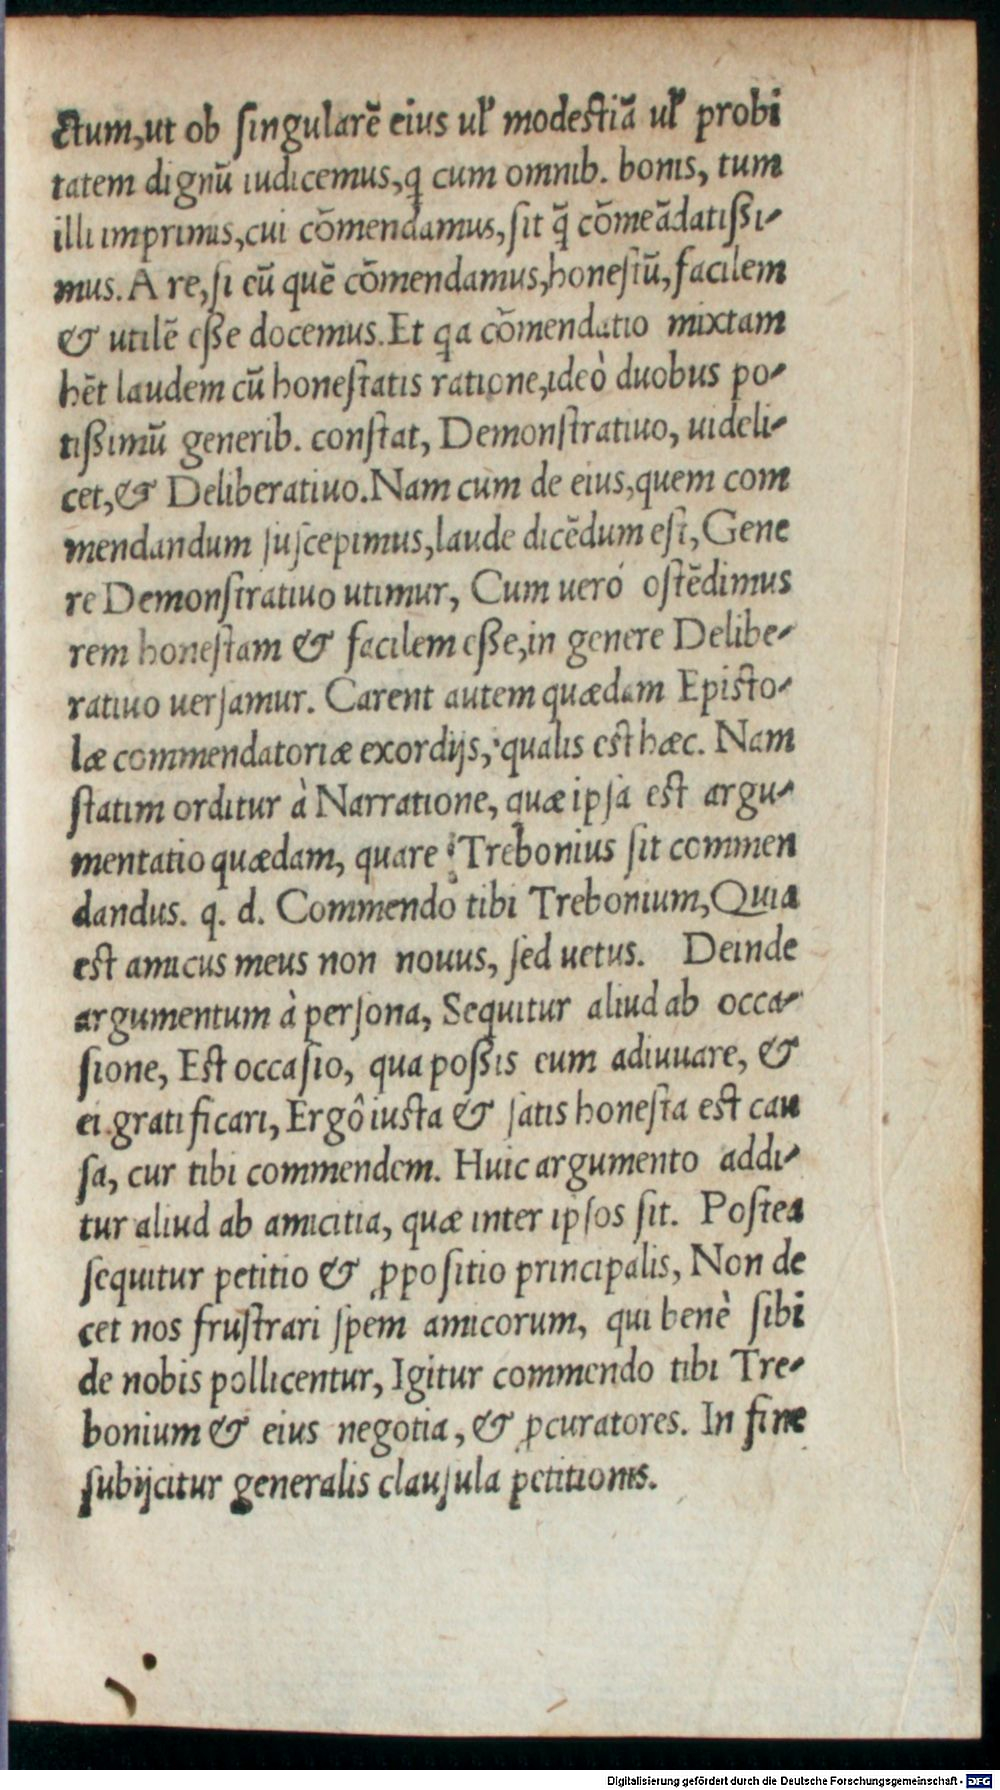 ctum, ut ob singularē eius ul' modestiā ul' probi
tatem dignū iudicemus, q cum omnib. bonis, tum
illi imprimis, cui cōmendamus, sit q̄ cōmeādatißi-
mus. A re, si eū quē cōmendamus, honestū, facilem
& utilē eße docemus. Et qa cōmendatio mixtam
hēt laudem cū honestatis ratione, ideò duobus po-
tißimū generib. constat, Demonstratiuo, uideli-
cet, & Deliberatiuo. Nam cum de eius, quem com
mendandum suscepimus, laude dicēdum est, Gene
re Demonstratiuo utimur, Cum uerò ostēdimus
rem honestam & facilem eße, in genere Delibe-
ratiuo uersamur. Carent autem quædam Episto-
læ commendatoriæ exordijs, qualis est hæc. Nam
statim orditur à Narratione, quæ ipsa est argu-
mentatio quædam, quare Trebonius sit commen
dandus. q. d. Commendo tibi Trebonium, Quia
est amicus meus non nouus, sed uetus. Deinde
argumentum à persona, Sequitur aliud ab occa-
sione, Est occasio, qua poßis eum adiuuare, &
ei gratificari, Ergô iusta & satis honesta est cau
sa, cur tibi commendem. Huic argumento addi-
tur aliud ab amicitia, quæ inter ipsos sit. Postea
sequitur petitio & ꝓpositio principalis, Non de
cet nos frustrari spem amicorum, qui benè sibi
de nobis pollicentur, Igitur commendo tibi Tre-
bonium & eius negotia, & ꝓcuratores. In fine
subijcitur generalis clausula petitionis.
Digitalisierung gefördert durch die Deutsche Forschungsgemeinschaft - DFG